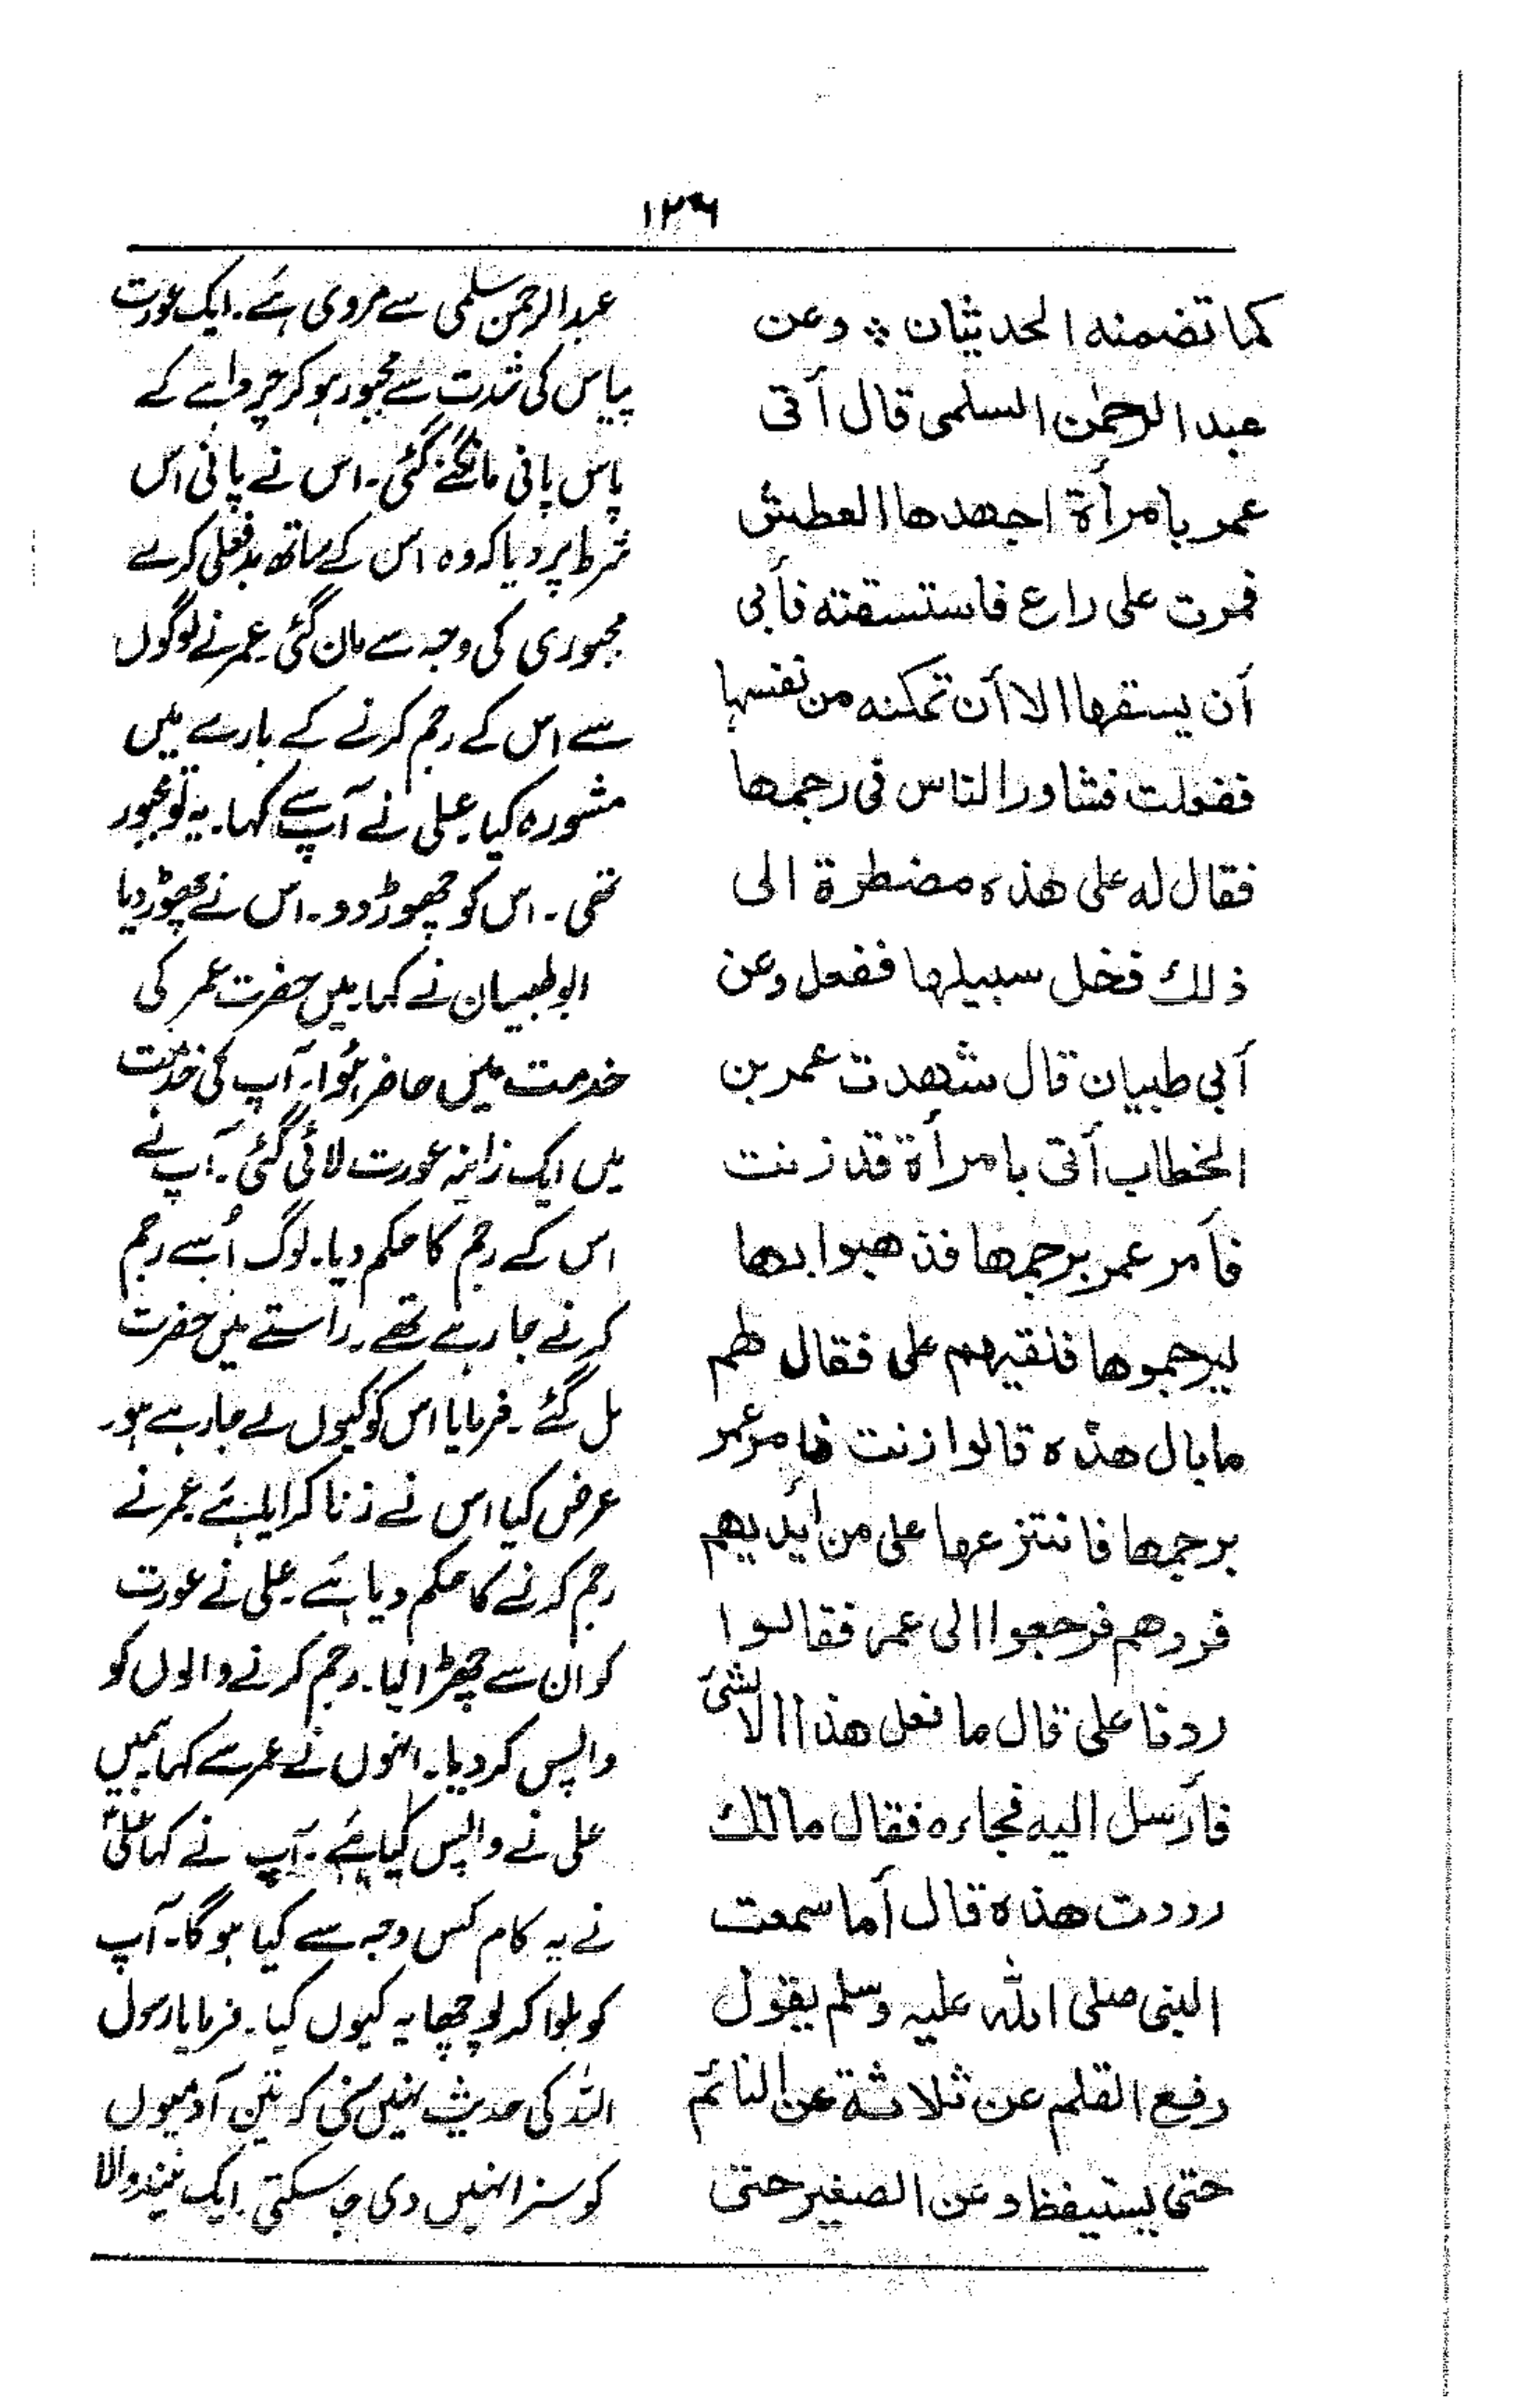 ۱۲۶
کما تضمنه الحدیثان ⁘ وعن
عبد الرحمٰن السلمی قال أتی
عمر بامرأة اجهدها العطش
فمرت علی راع فاستسقته فأبی
أن یسقها الا أن تمکنه من نفسها
ففعلت فشاور الناس فی رجمها
فقال له علی هٰذه مضطرة الی
ذلك فخل سبیلها ففعل وعن
أبی طبیان قال شهدت عمر بن
الخطاب أتی بامرأة قد زنت
فأمر عمر برجمها فذهبوا بها
لیرجموها فلقیهم علی فقال لهم
ما بال هذه قالوا زنت فامر عمر
برجمها فانتزعها علی من أیدیهم
فردهم فرجعوا الی عمر فقالوا
ردنا علی قال ما فعل هذا الا لشئ
فأرسل الیه فجاءه فقال مالك
رددت هذه قال أما سمعت
النبی صلی الله علیه وسلم یقول
رفع القلم عن ثلاثة عن النائم
حتی یستیقظ وعن الصغیر حتی
عبدالرحمٰن سلمی سے مروی ہے۔ ایک عورت
پیاس کی شدت سے مجبور ہو کر چرواہے کے
پاس پانی مانگنے گئی۔ اس نے پانی اس
شرط پر دیا کہ وہ اس کے ساتھ بدفعلی کرے
مجبوری کی وجہ سے مان گئی۔ عمر نے لوگوں
سے اس کے رجم کرنے کے بارے میں
مشورہ کیا۔ علی نے آپ سے کہا۔ یہ تو مجبور
تھی۔ اس کو چھوڑ دو۔ اس نے چھوڑ دیا
ابو طبیان نے کہا۔ میں حضرت عمر کی
خدمت میں حاضر ہُوا۔ آپ کی خدمت
میں ایک زانیہ عورت لائی گئی۔ آپ نے
اس کے رجم کا حکم دیا۔ لوگ اُسے رجم
کرنے جا رہے تھے۔ راستے میں حضرت
مل گئے۔ فرمایا اس کو کیوں لے جا رہے ہو۔
عرض کیا اس نے زنا کرایا ہے عمر نے
رجم کرنے کا حکم دیا ہے۔ علی نے عورت
کو ان سے چھڑا لیا۔ رجم کرنے والوں کو
واپس کر دیا۔ انہوں نے عمر سے کہا ہمیں
علی نے واپس کیا ہے۔ آپ نے کہا علیؑ
نے یہ کام کس وجہ سے کیا ہو گا۔ آپ
کو بلوا کر پوچھا یہ کیوں کیا۔ فرمایا رسول
اللہ کی حدیث نہیں سنی کہ تین آدمیوں
کو سزا نہیں دی جا سکتی۔ ایک نیند والا